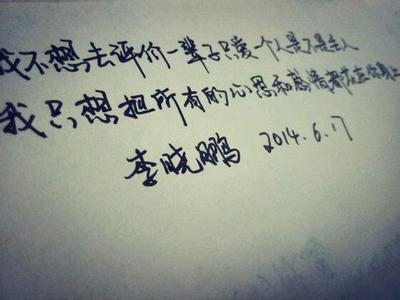 我不想去评价一辈子只爱一个人是不是丢人
我只想把所有的心思和感情都放在你身上
李晓鹏 2014.6.17